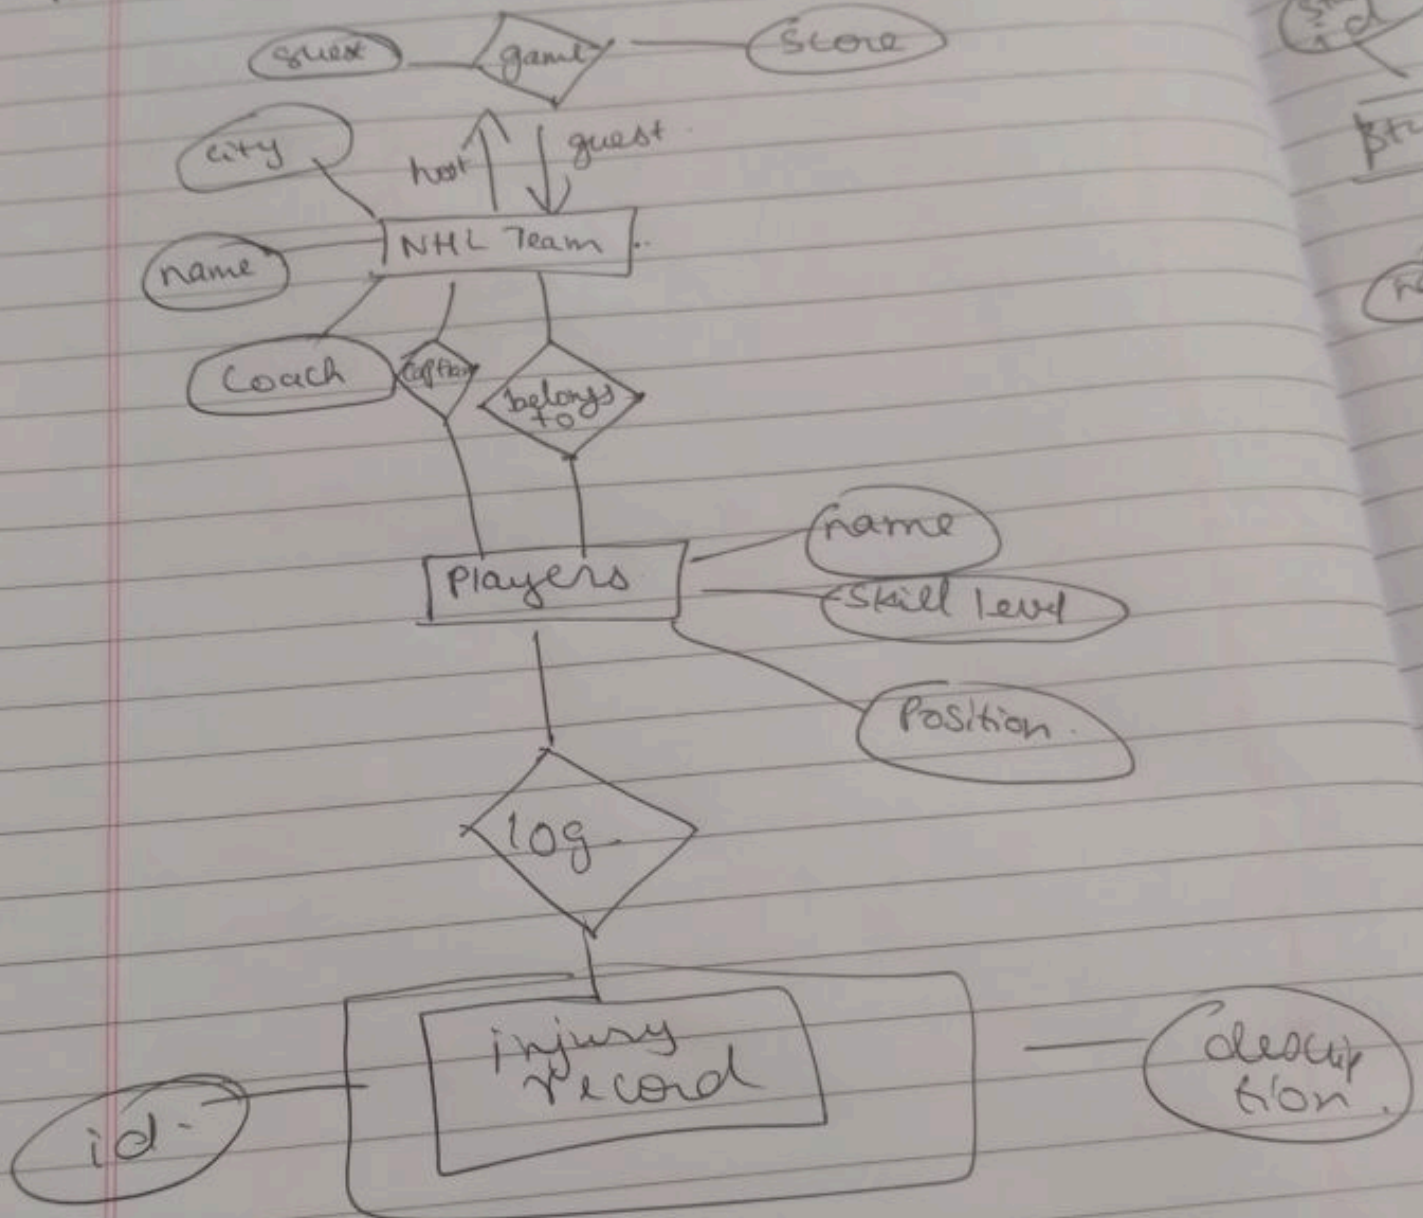 game
score
city
host
guest
NHL Team
name
Coach
belongs
to
Players
name
skill level
Position.
log
injury
record
id
descrip
tion.